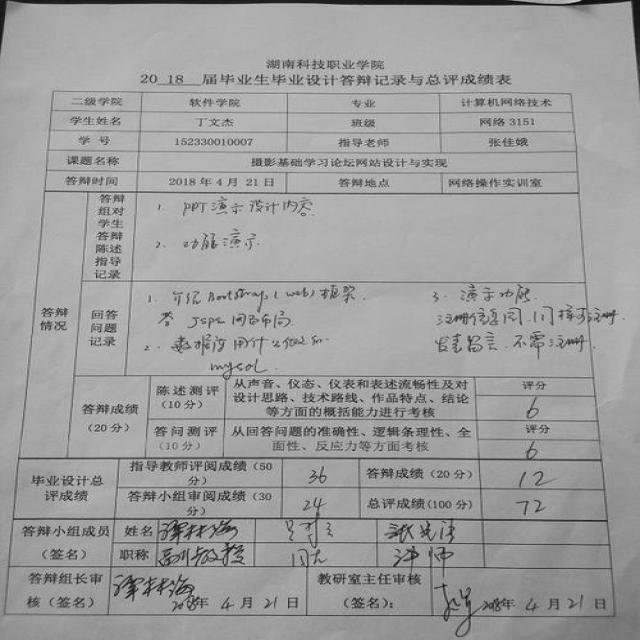 湖南科技职业学院
20 18 届毕业生毕业设计答辩记录与总评成绩表
二级学院 软件学院 专业 计算机网络技术
学生姓名 丁文杰 班级 网络 3151
学 号 152330010007 指导老师 张佳娥
课题名称 摄影基础学习论坛网站设计与实现
答辩时间 2018 年 4 月 21 日 答辩地点 网络操作实训室
答辩情况
答辩组对学生答辩陈述指导记录
1. PPT演示设计内容.
2. 功能演示.
回答问题记录
1. 介绍 Bootstrap (web) 框架.
2. 数据库用什么
mysql.
3. 演示功能.
发表留言. 不需注册.
答辩成绩(20 分)
陈述测评(10 分) 从声音、仪态、仪表和表述流畅性及对设计思路、技术路线、作品特点、结论等方面的概括能力进行考核 评分 6
答问测评(10 分) 从回答问题的准确性、逻辑条理性、全面性、反应力等方面考核 评分 6
毕业设计总评成绩
指导教师评阅成绩(50 分) 36 答辩成绩(20 分) 12
答辩小组审阅成绩(30 分) 24 总评成绩(100 分) 72
答辩小组成员(签名)
姓名
职称 副教授 讲师
答辩组长审核(签名) 2018年 4 月 21 日
教研室主任审核(签名): 2018年 4 月 21 日